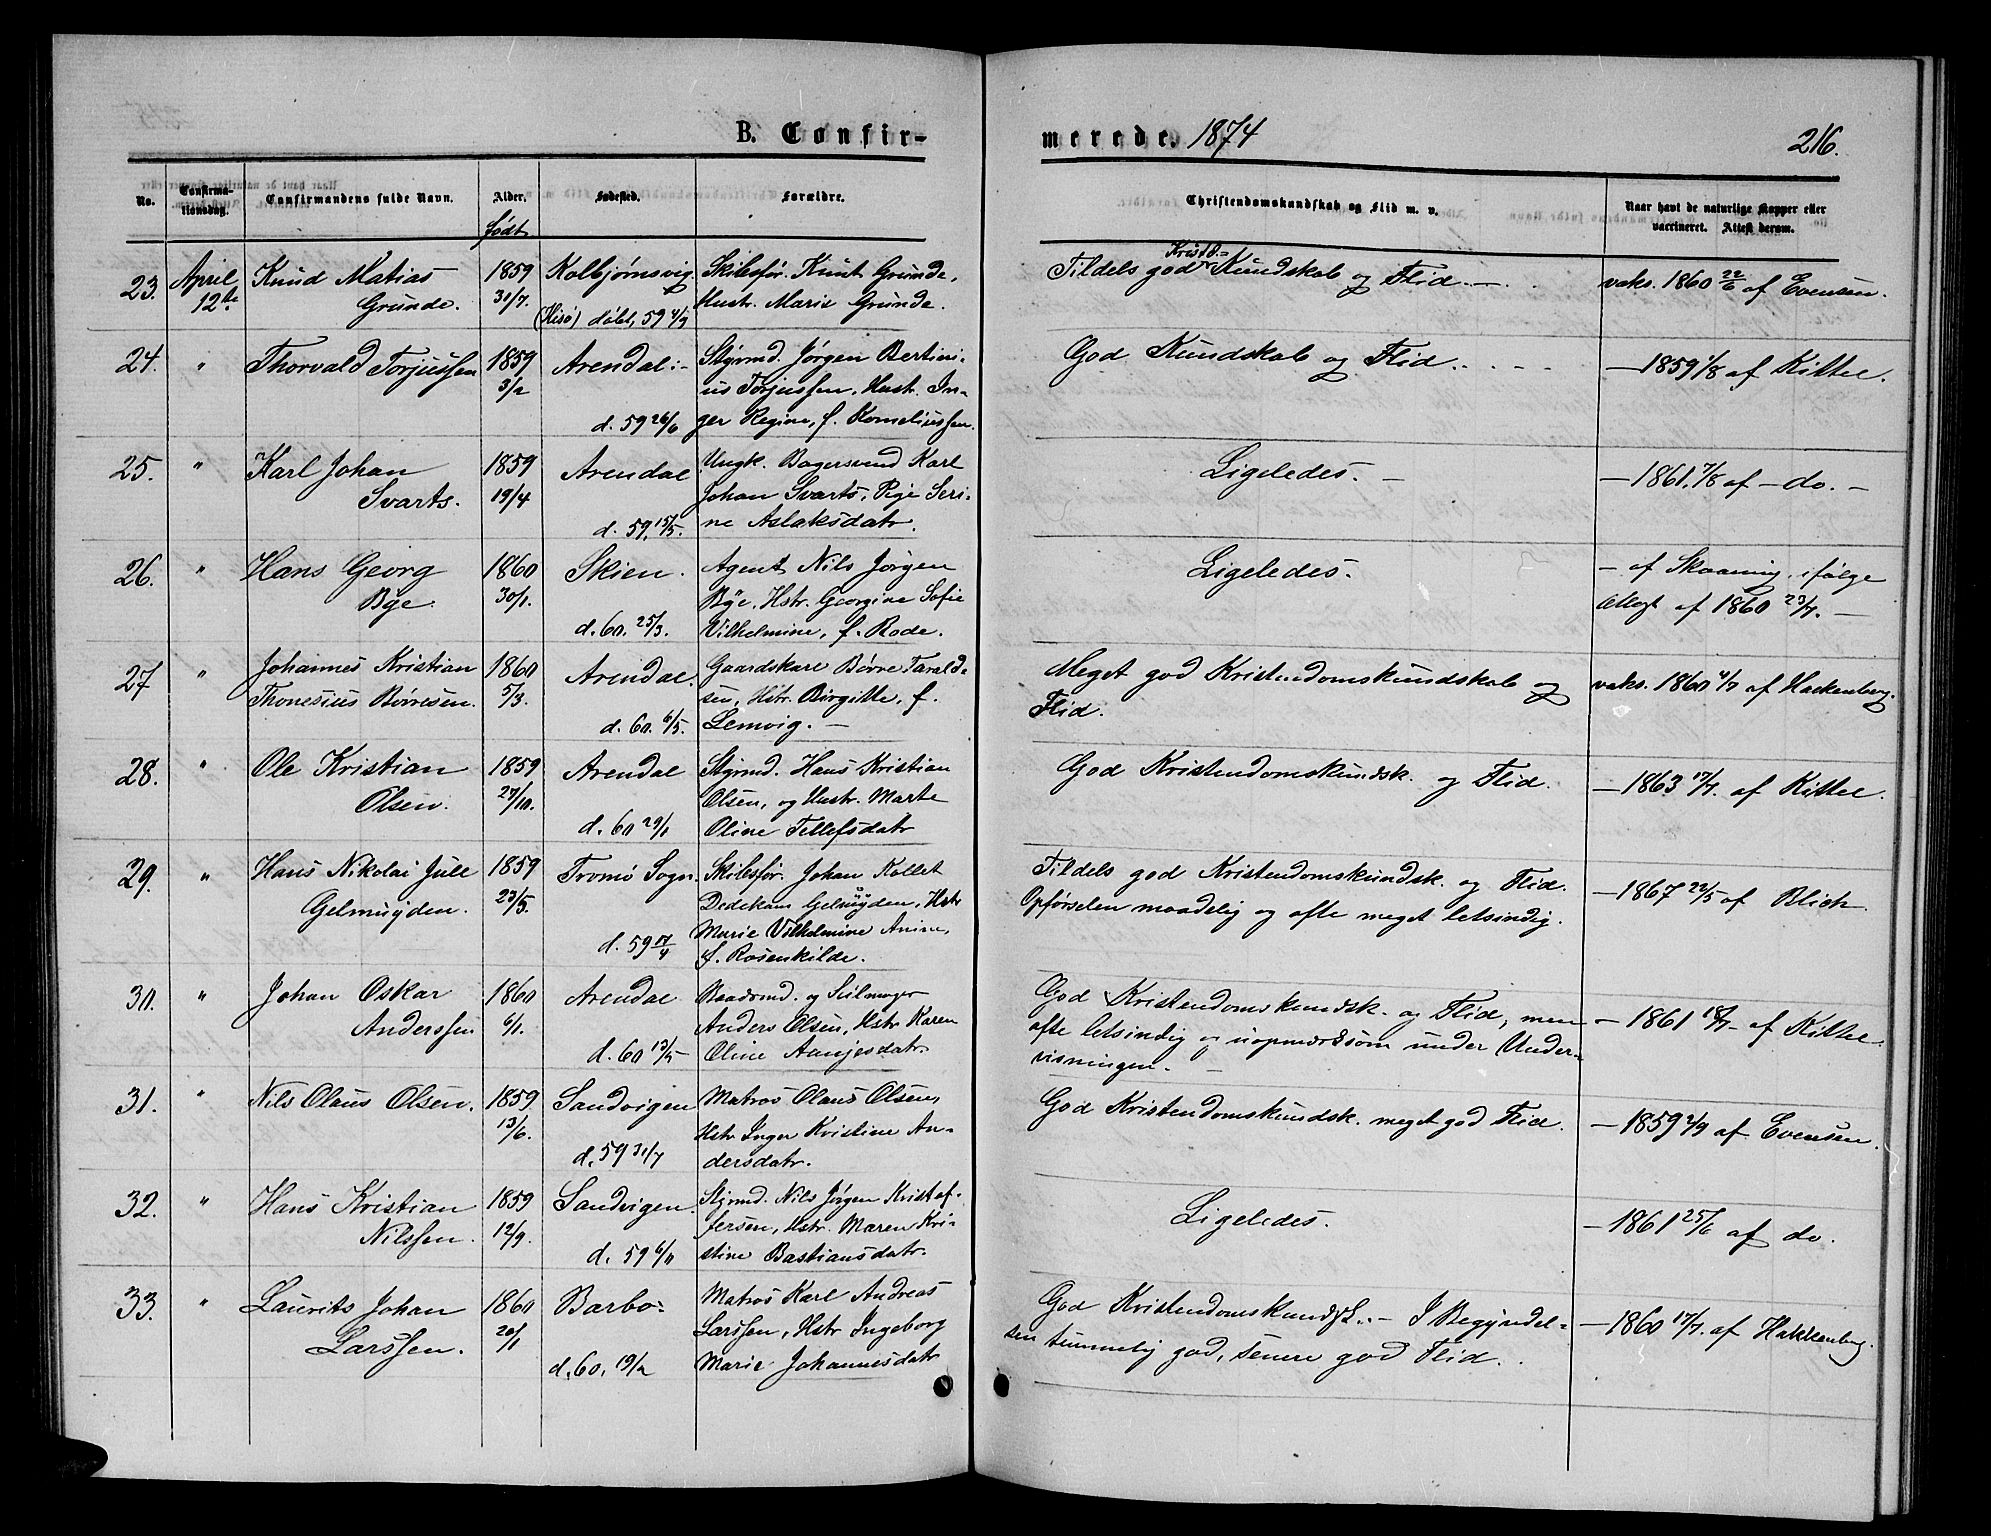 B. Confir-
merede. 1874
216.
No.
Confirma-
tionsdag.
Confirmandens fulde Navn.
Alder.
født
Fødested.
Forældre.
Christendomskundskab og Flid m. v.
Naar havt de naturlige Kopper eller
vaccineret. Attest derom.
23. April 12te Knud Matias Grunde. 1859 31/7. Kolbjørnsvig (Hisø) døbt, 59 4/9
Skibsfør. Knut Grunde,
Hustr. Marie Grunde.
Tildels god Kristd.- Kundskab og Flid. —
vaks. 1860 22/6 af Evensen.
24. " Thorvald Torjussen 1859 3/2 Arendal :- d. 59 26/6
Styrmd. Jørgen Bertini-
us Torjussen, Hustr. In-
ger Regine, f. Korneliussen.
God Kundskab og Flid.
— 1859 1/8 af Kittel.
25. " Karl Johan Svarts. 1859 19/4 Arendal d. 59, 15/5.
Ungk. Bagersvend Karl
Johan Svarts, Pige Seri-
ne Aslaksdatr.
Ligeledes. —
— 1861. 7/8 af — do. —
26. " Hans Georg Bye. 1860 30/1. Skien. d. 60. 25/3.
Agent Nils Jørgen
Bye. Hstr. Georgine Sofie
Vilhelmine, f. Rode.
Ligeledes.
— af Skaaning, ifølge
Attest af 1860 23/7. —
27 " Johannes Kristian
Thonesius Børresen. 1860 5/3. Arendal. d. 60. 6/5.
Gaardskarl Børre Tarald-
sen, Hstr. Birgitte, f.
Lemvig. —
Meget god Kristendomskundskab og
Flid.
vaks. 1860 4/7 af Hackenberg.
28. " Ole Kristian Olsen. 1859 27/10. Arendal d. 60 29/1
Styrmd. Hans Kristian
Olsen, og Hustr. Marte
Oline Tellefsdatr
God Kristendomskundsk. og Flid.
— 1863 17/7. af Kittel.
29. " Hans Nikolai Jull Gelmuyden. 1859 23/5. Tromø Sogn. d. 59 17/4
Skibsfør. Johan Kallet
Dedekam Gelmuyden, Hstr
Marie Vilhelmine Anine,
f. Rosenkilde.
Tildels god Kristendomskundsk. og Flid.
Opførselen maadelig og ofte meget letsindig.
— 1867 22/5 af Blich.
30. " Johan Oskar Anderssen 1860 6/1. Arendal d. 60 13/5
Baadsmd. og Seilmager
Anders Olsen, Hstr Karen
Oline Aanjesdatr.
God Kristendomskundsk. og Flid, men
ofte letsindig og uopmærksom under Under-
visningen. —
— 1861 18/7- af Kittel.
31. " Nils Olaus Olsen. 1859 13/6. Sandvigen d. 59 31/7
Matros Olaus Olsen,
Hstr Inger Kristine An-
dersdatr.
God Kristendomskundsk. meget god Flid.
— 1859 2/9 af Evensen.
32. " Hans Kristian Nilssen. 1859 12/9. Sandvigen. d. 59 6/11
Styrmd. Nils Jørgen Kristof-
fersen, Hstr. Maren Kri-
stine Bastiansdatr.
Ligeledes.
— 1861 25/6 af do.
33. " Laurits Johan Larssen. 1860 20/1 Barbo: d. 60, 19/2
Matros Karl Andreas
Larssen, Hstr Ingeborg
Marie Johannesdatr
God Kristendomskundsk. — I Begyndel-
sen temmelig god, senere god Flid.
— 1860 17/7. af Hakkenberg.